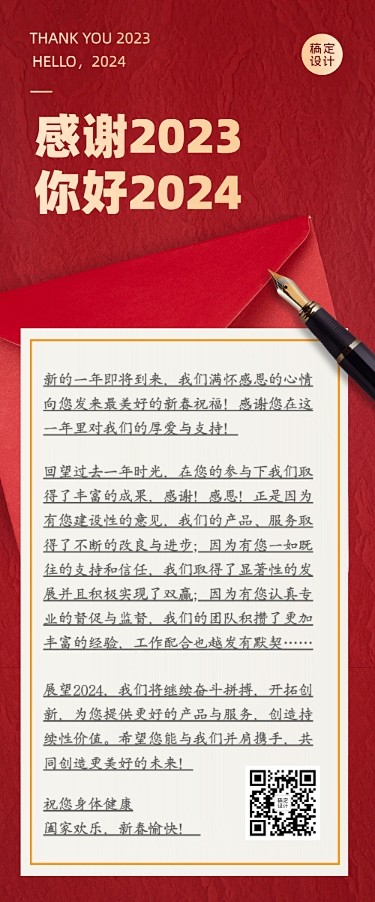 THANK YOU 2023
HELLO，2024
稿定
设计
感谢2023
你好2024
新的一年即将到来，我们满怀感恩的心情
向您发来最美好的新春祝福！感谢您在这
一年里对我们的厚爱与支持！
回望过去一年时光，在您的参与下我们取
得了丰富的成果，感谢！感恩！正是因为
有您建设性的意见，我们的产品、服务取
得了不断的改良与进步；因为有您一如既
往的支持和信任，我们取得了显著性的发
展并且积极实现了双赢；因为有您认真专
业的督促与监督，我们的团队积攒了更加
丰富的经验，工作配合也越发有默契……
展望2024，我们将继续奋斗拼搏，开拓创
新，为您提供更好的产品与服务，创造持
续性价值。希望您能与我们并肩携手，共
同创造更美好的未来！
祝您身体健康
阖家欢乐，新春愉快！
稿定
设计